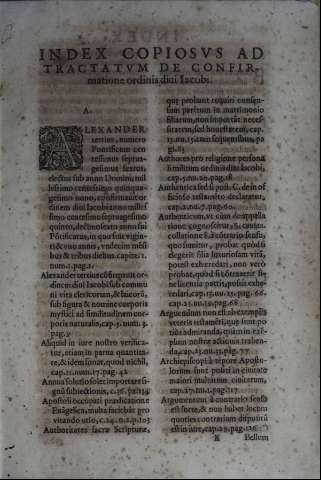 INDEX COPIOSVS AD
TRACTATVM DE CONFIR-
matione ordinis diui Iacobi.
A.
ALEXANDER
tertius, numero
Pontificum cen
tesimus septua-
gesimus sextus,
electus sub anno Domini, mil
lesimo centesimo quinqua-
gesimo nono, confirmauit or
dinem diui Iacobi anno millesi
simo centesimo septuagesimo
quinto, decimosexto anno sui
Pōtificatus, in quo fuit viginti
& vno annis, vndecim mēsi
bus & tribus diebus, capite. 1.
num. 1. pag. 1.
Alexander tertius cōstituit or
dinem diui Iacobi sub commu
ni vita clericorum, & laicorū,
sub figura & nomine corporis
mystici ad similitudinem cor
poris naturalis, cap. 3. num. 3.
pag. 9
Aliquid in iure nostro verifica-
tur, etiam in parua quantita-
te, & idem sonat, quod nichil,
cap. 11. num. 17. pag. 42
Annus solutio solet importare si
gnū subiectionis, c. 36. pa. 139
Apostoli occupati prædicatione
Euāgelica, multa faciebāt pro
vitando otio, c. 24. n. 2. p. 103
Authoritates sacræ Scripturæ,
quæ probant requiri consen-
sum patrium in matrimonio
filiarum, non important neces-
sitatem, sed honestatem, cap.
13. nu. 15. cum sequentibus, pa-
gi. 83
Authores pro religione persona
li militum ordinis diui Iacobi,
cap. 5. nu. 22. pag. 18
Authentica sed si post. C. de in of
ficioso testamēto declaratur,
cap. 2. nu. 7. pag. 60.
Authenticum, vt cum de appella
tione cognoscitur, & causa.
collatione 8. à cōtrario sensu,
quo sumitur, probat quòd si
degerit filia luxuriosam vitā,
potest exheredari, non vero
probat, quòd si cōtraxerit si
ne licentia patris, possit exhe-
redari, cap. 13. nu. 13. pag. 66.
cap. 25. nu. 19. pag. 68
Arguendum non est ab exemplis
veteris testamēti, quæ sunt po
tiùs admiranda, quàm in exem
plum nostræ actionis trahen-
da, cap. 23. nu. 33. pag. 77
Archiepiscopi à tempore Aposto-
lorum sunt positi in ciuitate
maiori multarum ciuitatum,
cap. 27. nu. 2. pag. 117
Argumentum à contrario sensu
est forte, & non habet locum
quoties contrarium disputatū
est in iure, cap. 29. pag. 126
K Bellum